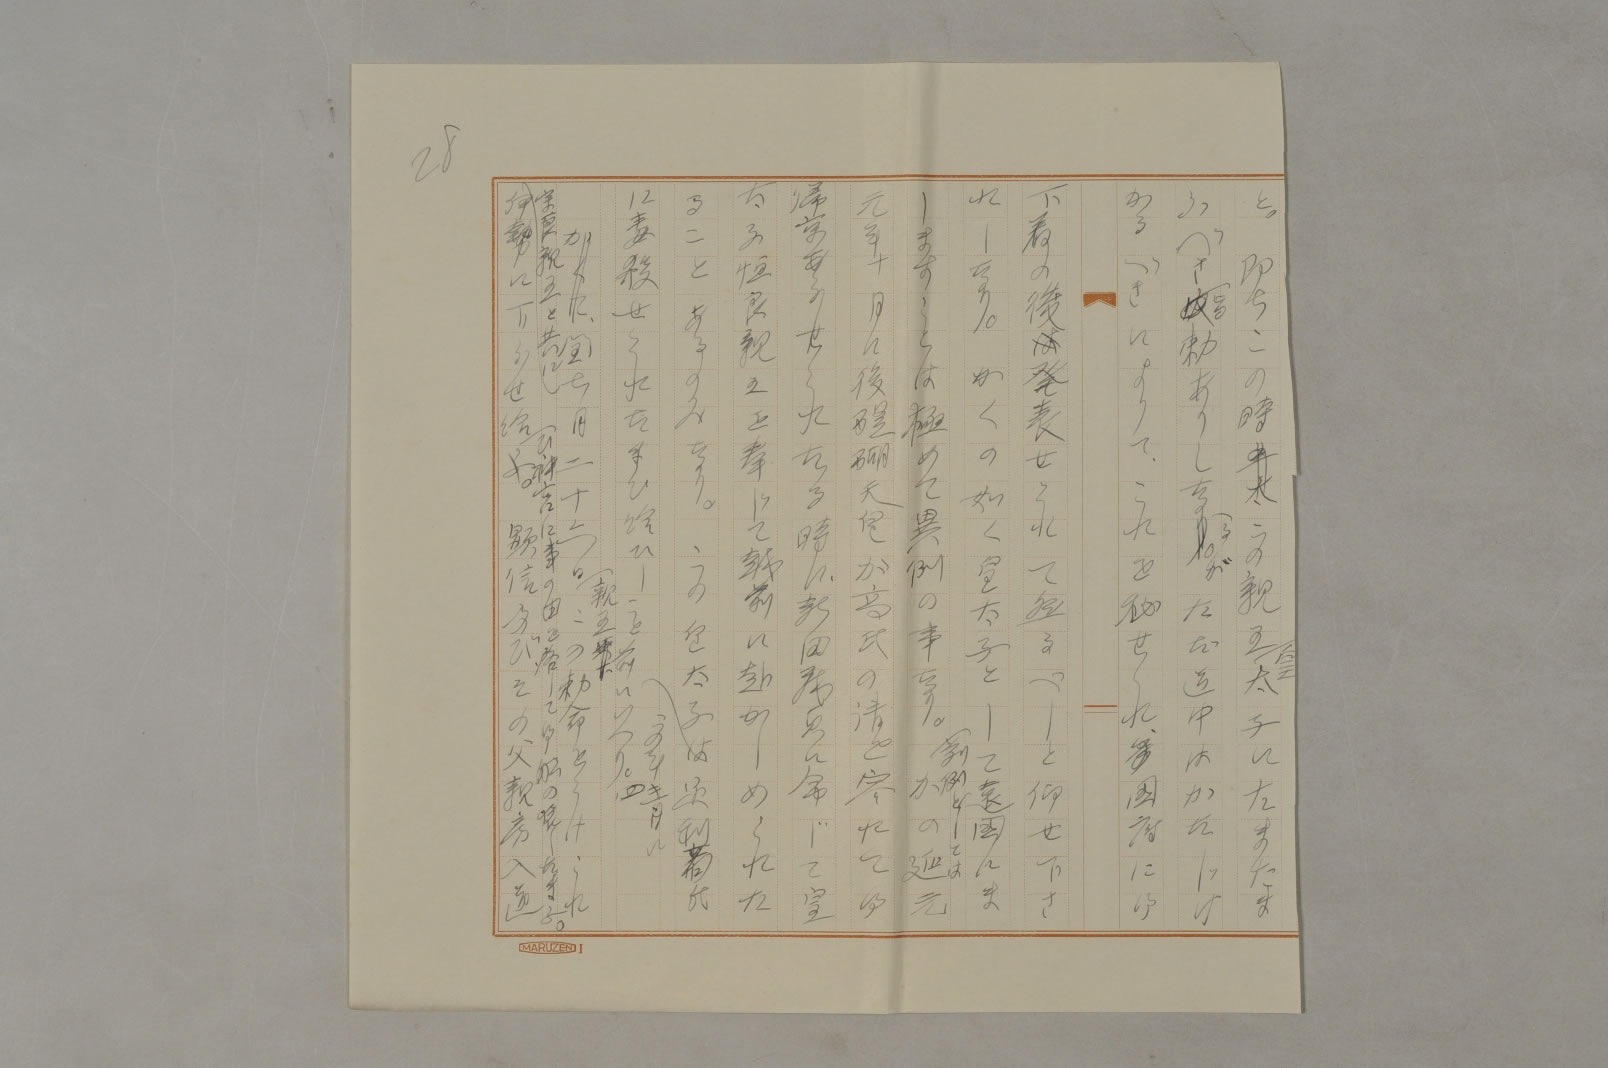 28
と。
即ちこの時この親王皇太子にたまたま
ふべき宣勅ありしなるがただ道中はかたじけ
かるべきによりて、これを秘せられ、国府に御
下着の後発表せられて然るべしと仰せ下さ
れしなり。かくの如く皇太子として遠国にま
しますことは極めて異例の事なり。前例としては かの延元
元年十月に後醍醐天皇が高氏の請を容れて御
帰京あらせられたる時に、新田義貞に命じて皇
太子恒良親王を奉じて越前に赴かしめられた
ることあるのみなり。この皇太子は足利氏
この年四月に
に毒殺せられたまひ給ひしこと前にいへり。
かくて、閏七月二十六日この勅命をうけられ
親王
宗良親王と共に神宮に事の由を啓して御船の
伊勢に下らせ給ふ。顕信及びその父親房入道
MARUZEN I